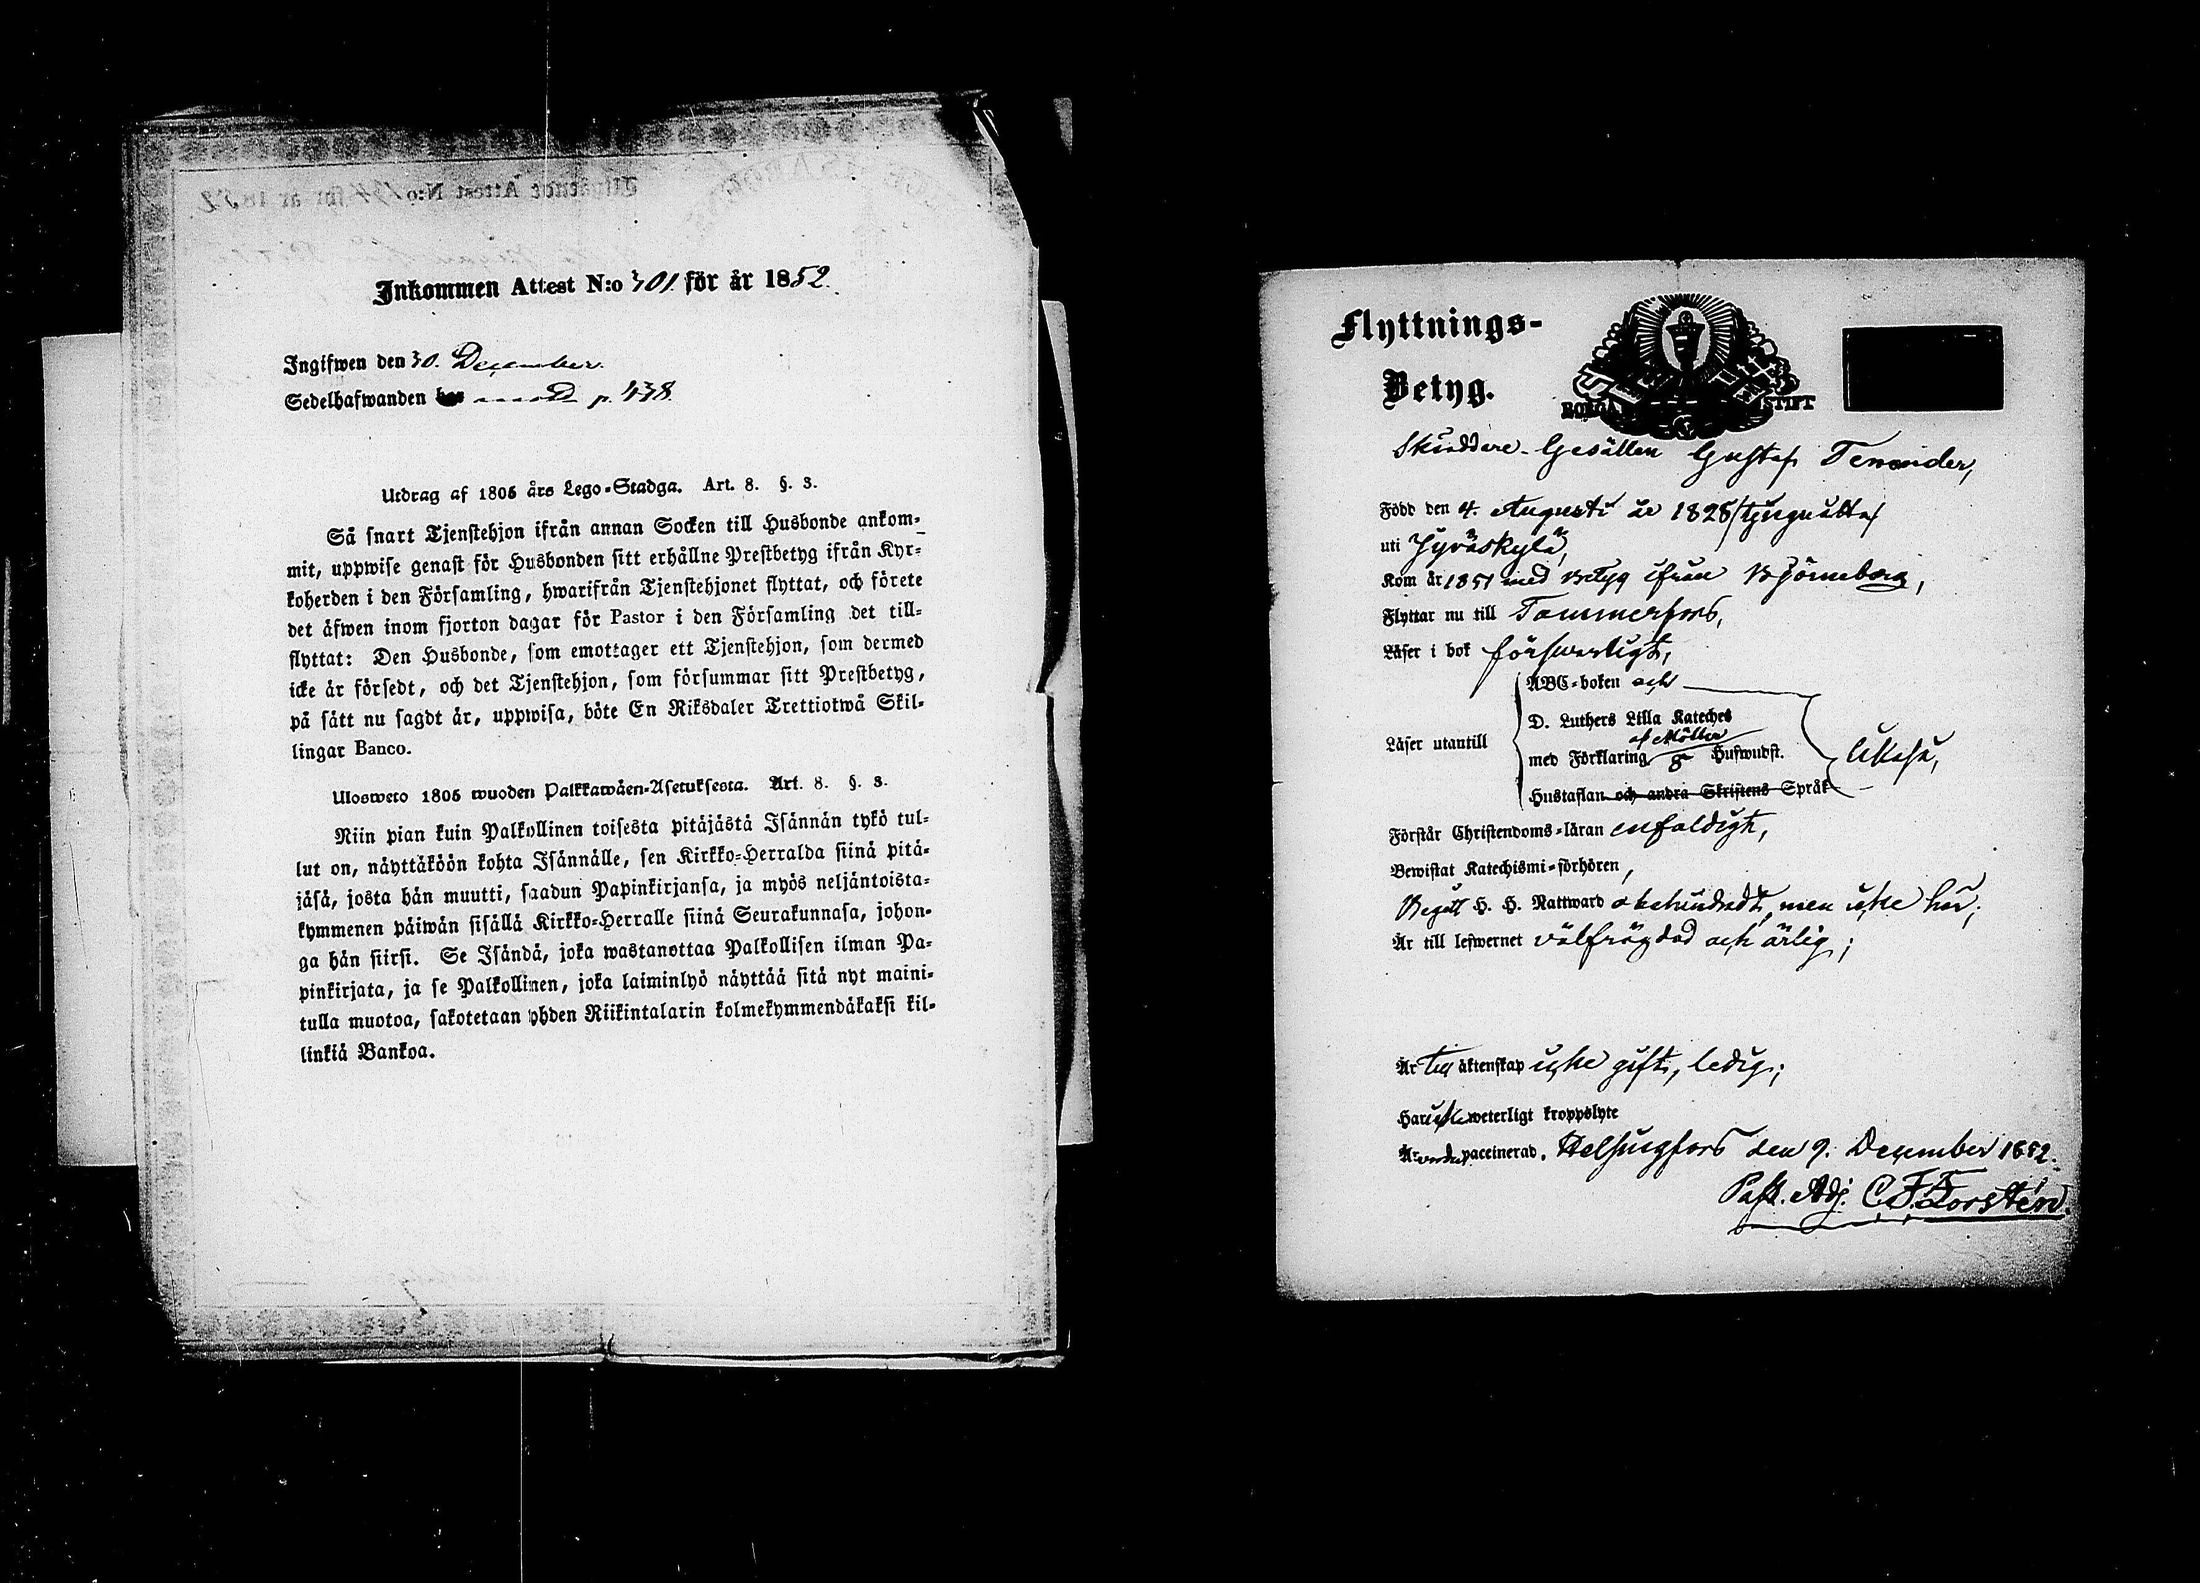 Inkommen Attest N:o 301. för år 1852.
Ingifwen den 30. December.
Sedelhafwanden p. 438.
Utdrag af 1805 års Lego-Stadga. Art. 8. §. 3.
Så snart Tjenstehjon ifrån annan Socken till Husbonde ankom-
mit, uppwise genast för Husbonden sitt erhållne Prestbetyg ifrån Kyr-
koherden i den Församling, hwarifrån Tjenstehjonet flyttat, och förete
det äfwen inom fjorton dagar för Pastor i den Församling det till-
flyttat: Den Husbonde, som emottager ett Tjenstehjon, som dermed
icke är försedt, och det Tjenstehjon, som försummar sitt Prestbetyg,
på sätt nu sagdt är, uppwisa, böte En Riksdaler Trettiotwå Skil-
lingar Banco.
Ulosweto 1805 wuoden Palkkawäen-Asetuksesta. Art. 8. §. 3.
Niin pian kuin Palkollinen toisesta pitäjästä Isännän tykö tul-
lut on, näyttäköön kohta Isännälle, sen Kirkko-Herralda siinä pitä-
jäsä, josta hän muutti, saadun Papinkirjansa, ja myös neljäntoista-
kymmenen päiwän sisällä Kirkko-Herralle siinä Seurakunnasa, johon-
ga hän siirsi. Se Isändä, joka wastanottaa Palkollisen ilman Pa-
pinkirjata, ja se Palkollinen, joka laiminlyö näyttää sitä nyt maini-
tulla muotoa, sakotetaan yhden Riikintalarin kolmekymmendäkaksi kil-
linkiä Bankoa.
Flyttnings-
Betyg.
BORGÅ STIFT
Skräddare-Gesällen Gustaf Tenander,
Född den 4. Augusti år 1828/tjuguåtta/
uti Jyväskylä,
Kom år 1851 med Betyg ifrån Björneborg,
Flyttar nu till Tammerfors,
Läser i bok försvarligt,
ABC-boken och
D. Luthers Lilla Kateches
af Möller
Läser utantill
med Förklaring Huswudst.
likaså,
Hustaflan och andra Skriftens Språk
Förstår Christendoms-läran enfaldigt,
Bewistat Katechismi-förhören,
Begått H. H. Nattward obehindradt, men icke här;
Är till lefwernet välfrägdad och ärlig;
Är till äktenskap icke gift, ledig;
Har icke weterligt kroppslyte
Är vaccinerad. Helsingfors den 9. December 1852.
Past. Adj. C. F. Forstén